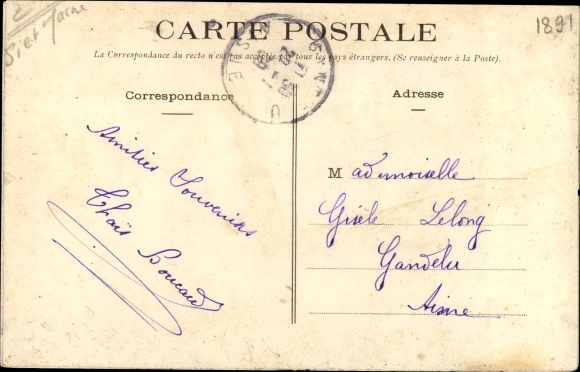 2
S et Marne
1891
CARTE POSTALE
La Correspondance du recto n'est pas acceptée par tous les pays étrangers. (Se renseigner à la Poste).
Correspondance
Adresse
Amitiés Souvenirs
Thaïs Boucaud
Mademoiselle
Gisèle Lelong
Gandelu
Aisne